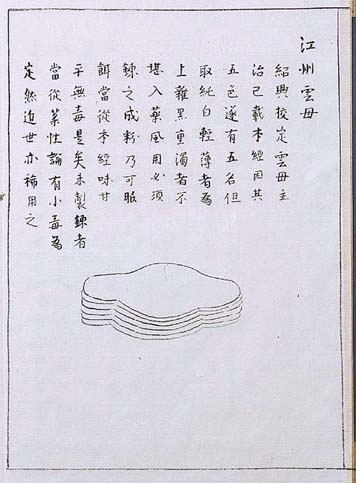 江州雲母
紹興校定雲母主
治已載本經因其
五色遂有五名但
取純白輕薄者為
上雜黑重濁者不
堪入藥風用必須
鍊之成粉乃可服
餌當從本經味甘
平無毒是矣未製鍊者
當從藥性論有小毒為
定然近世亦稀用之